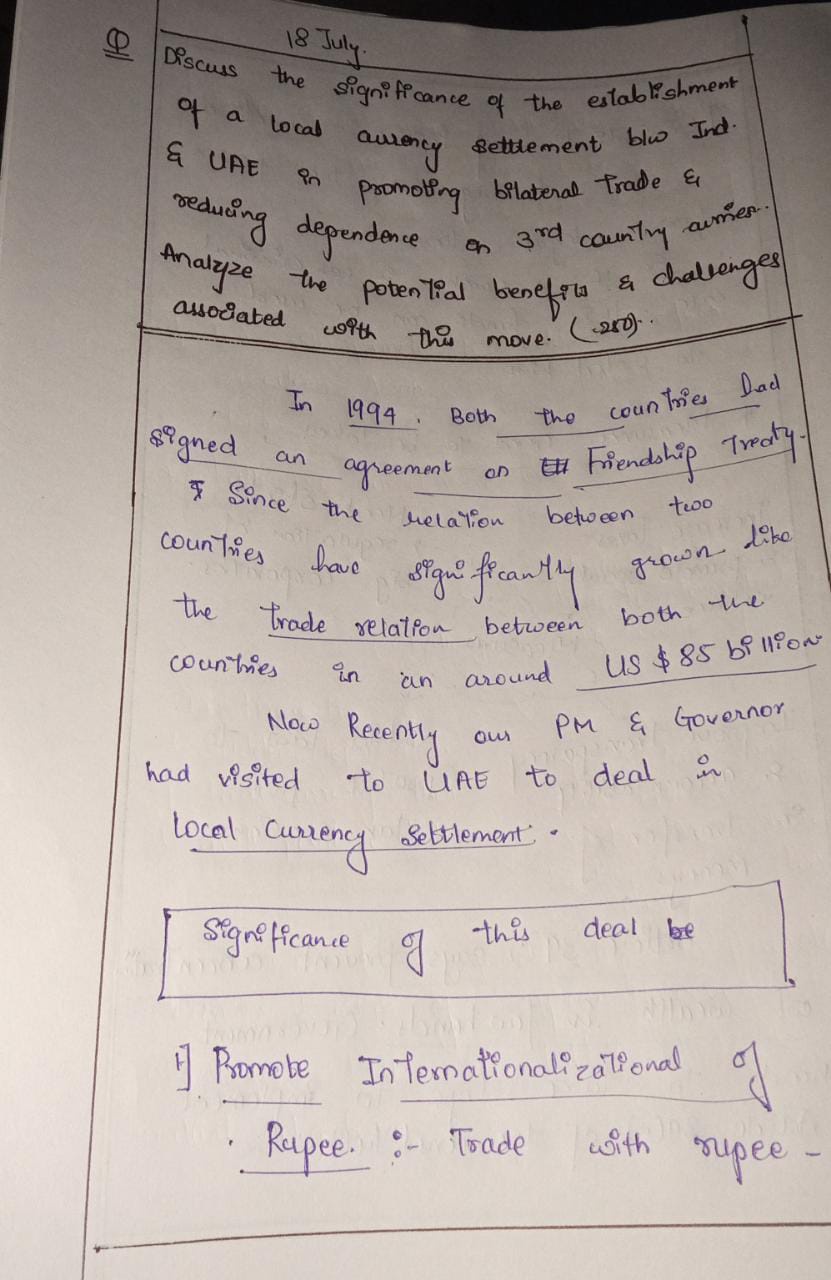 Q
18 July.
Discuss the significance of the establishment
of a local currency settlement b/w Ind.
& UAE in promoting bilateral Trade &
reducing dependence on 3rd country curries..
Analyze the potential benefits & challenges
associated with this move. (250)..
In 1994. Both the countries had
signed an agreement on Friendship Treaty.
Since the relation between two
countries have significantly grown like
the trade relation between both the
countries in an around US $ 85 billion
Now Recently our PM & Governor
had visited to UAE to deal in
local Currency Settlement.
Significance of this deal be
1] Promote Internationalizational of
Rupee. :- Trade with rupee -